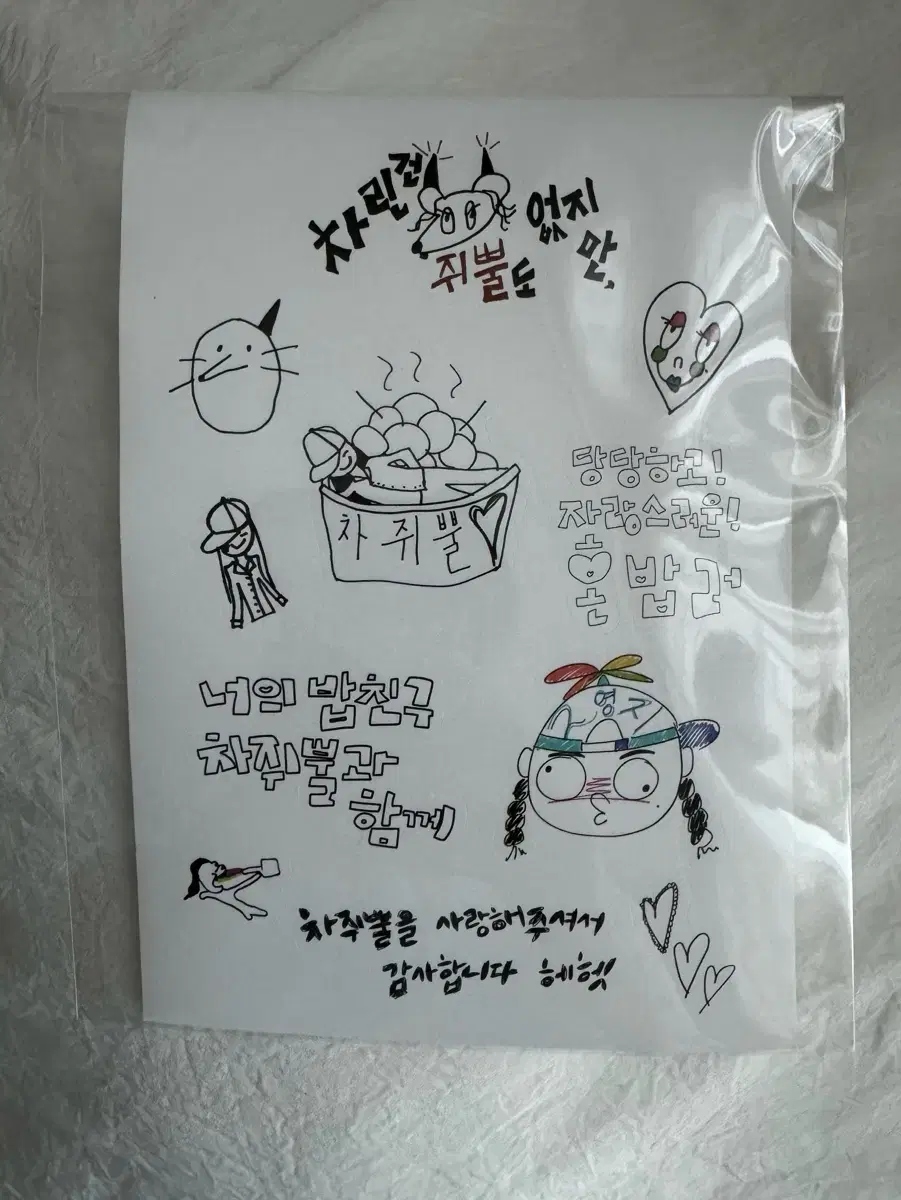 차린건
쥐뿔도
없지
만,
차 쥐 뿔
당당하고!
자랑스러운!
혼밥러
영구
너의 밥친구
차쥐뿔과
함께
차쥐뿔을 사랑해주셔서
감사합니다 헤헷